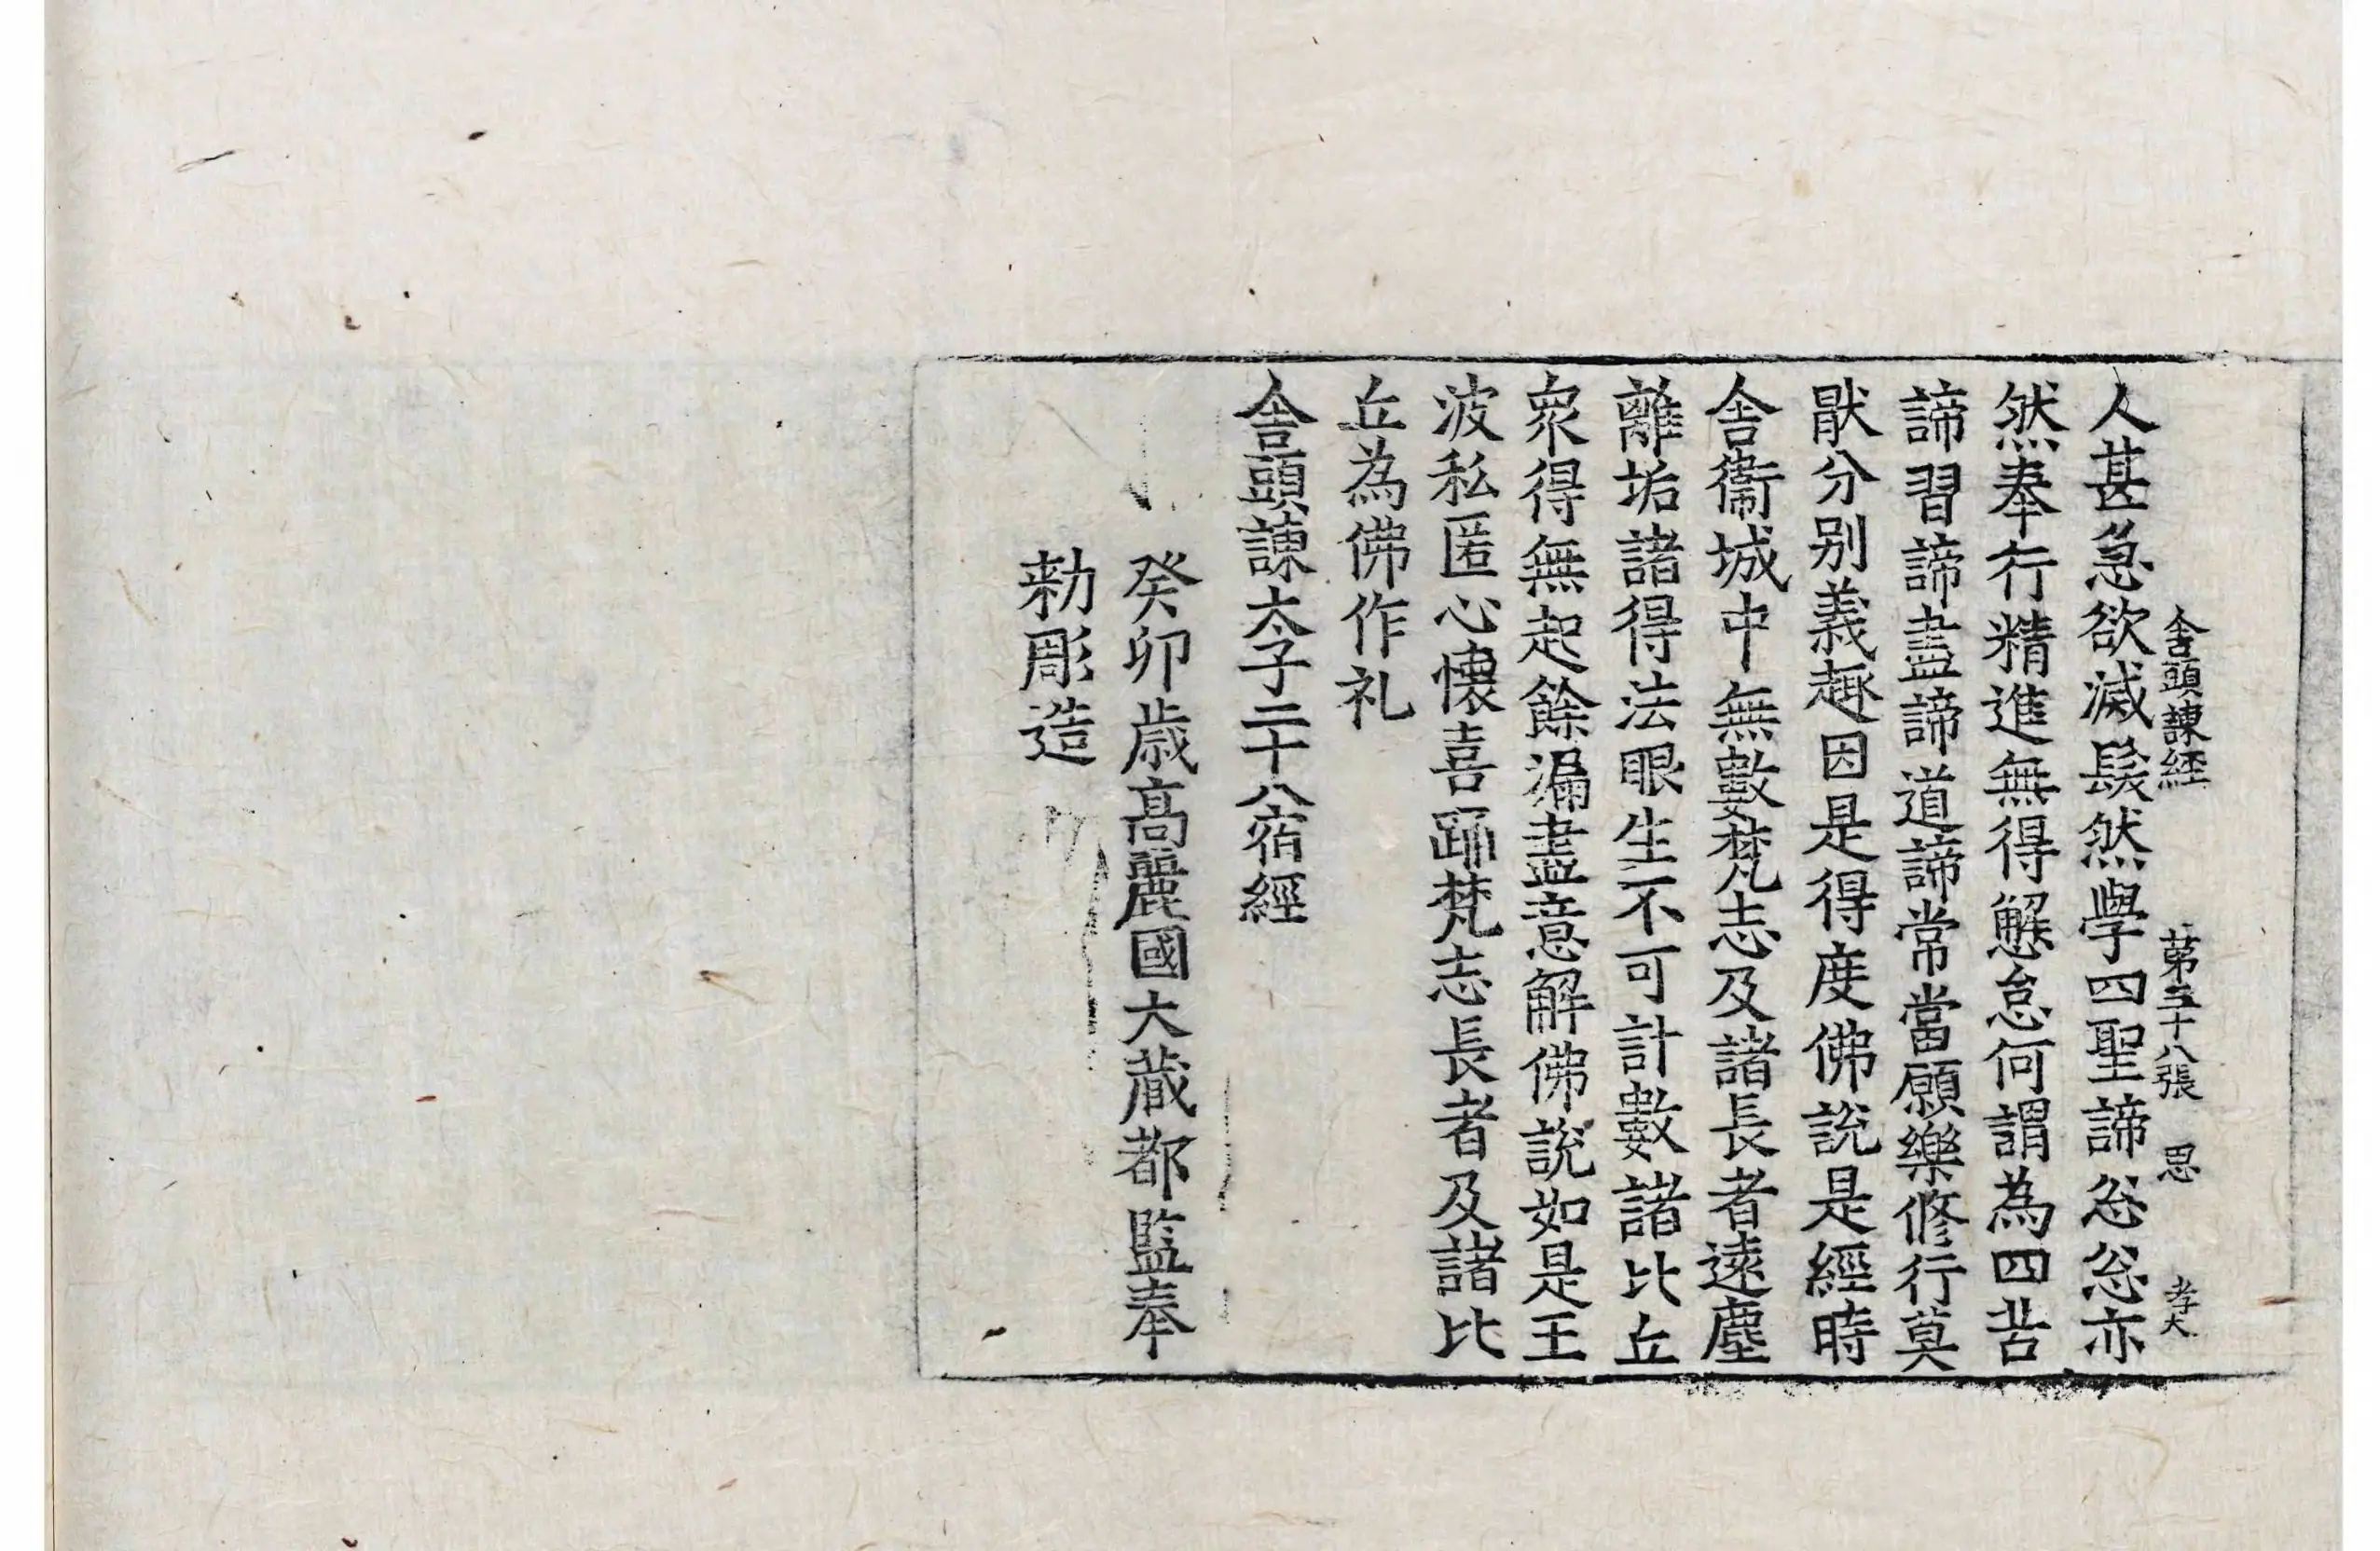 舍頭諫經　第三十八張　思　孝大
人甚急欲滅髮然學四聖諦忩忩亦
然奉行精進無得懈怠何謂為四苦
諦習諦盡諦道諦常當願樂修行莫
猒分別義趣因是得度佛說是經時
舍衞城中無數梵志及諸長者遠塵
離垢諸得法眼生不可計數諸比丘
衆得無起餘漏盡意解佛說如是王
波私匿心懷喜踊梵志長者及諸比
丘為佛作礼
舍頭諫太子二十八宿經
癸卯歲高麗國大藏都監奉
勑彫造